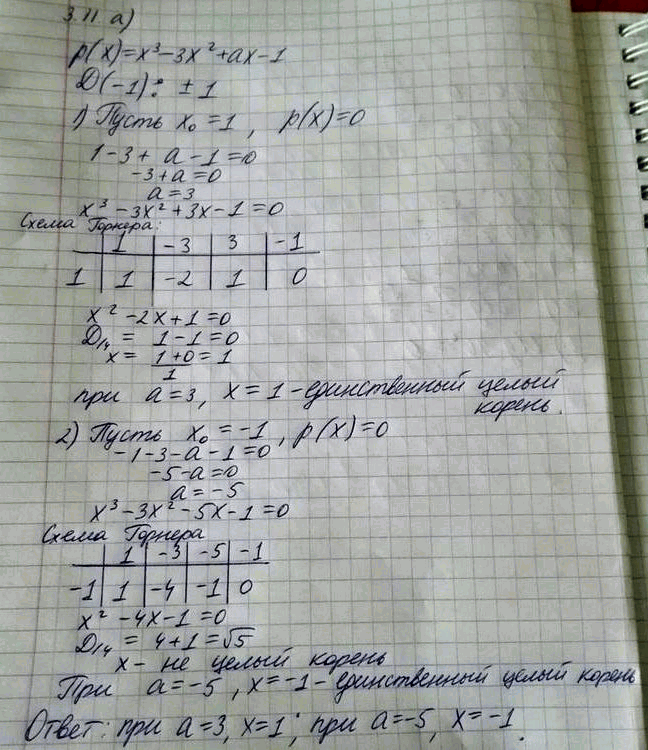 3.11 а)
p(x)=x³-3x²+ax-1
D(-1): ±1
1) Пусть x₀=1, p(x)=0
1-3+a-1=0
-3+a=0
a=3
x³-3x²+3x-1=0
Схема Горнера:
1 -3 3 -1
1 1 -2 1 0
x²-2x+1=0
D/4 = 1-1=0
x = (1+0)/1 = 1
при a=3, x=1 - единственный целый
корень.
2) Пусть x₀=-1, p(x)=0
-1-3-a-1=0
-5-a=0
a=-5
x³-3x²-5x-1=0
Схема Горнера
1 -3 -5 -1
-1 1 -4 -1 0
x²-4x-1=0
D/4 = 4+1=√5
x - не целый корень
При a=-5, x=-1 - единственный целый корень
Ответ: при a=3, x=1; при a=-5, x=-1.